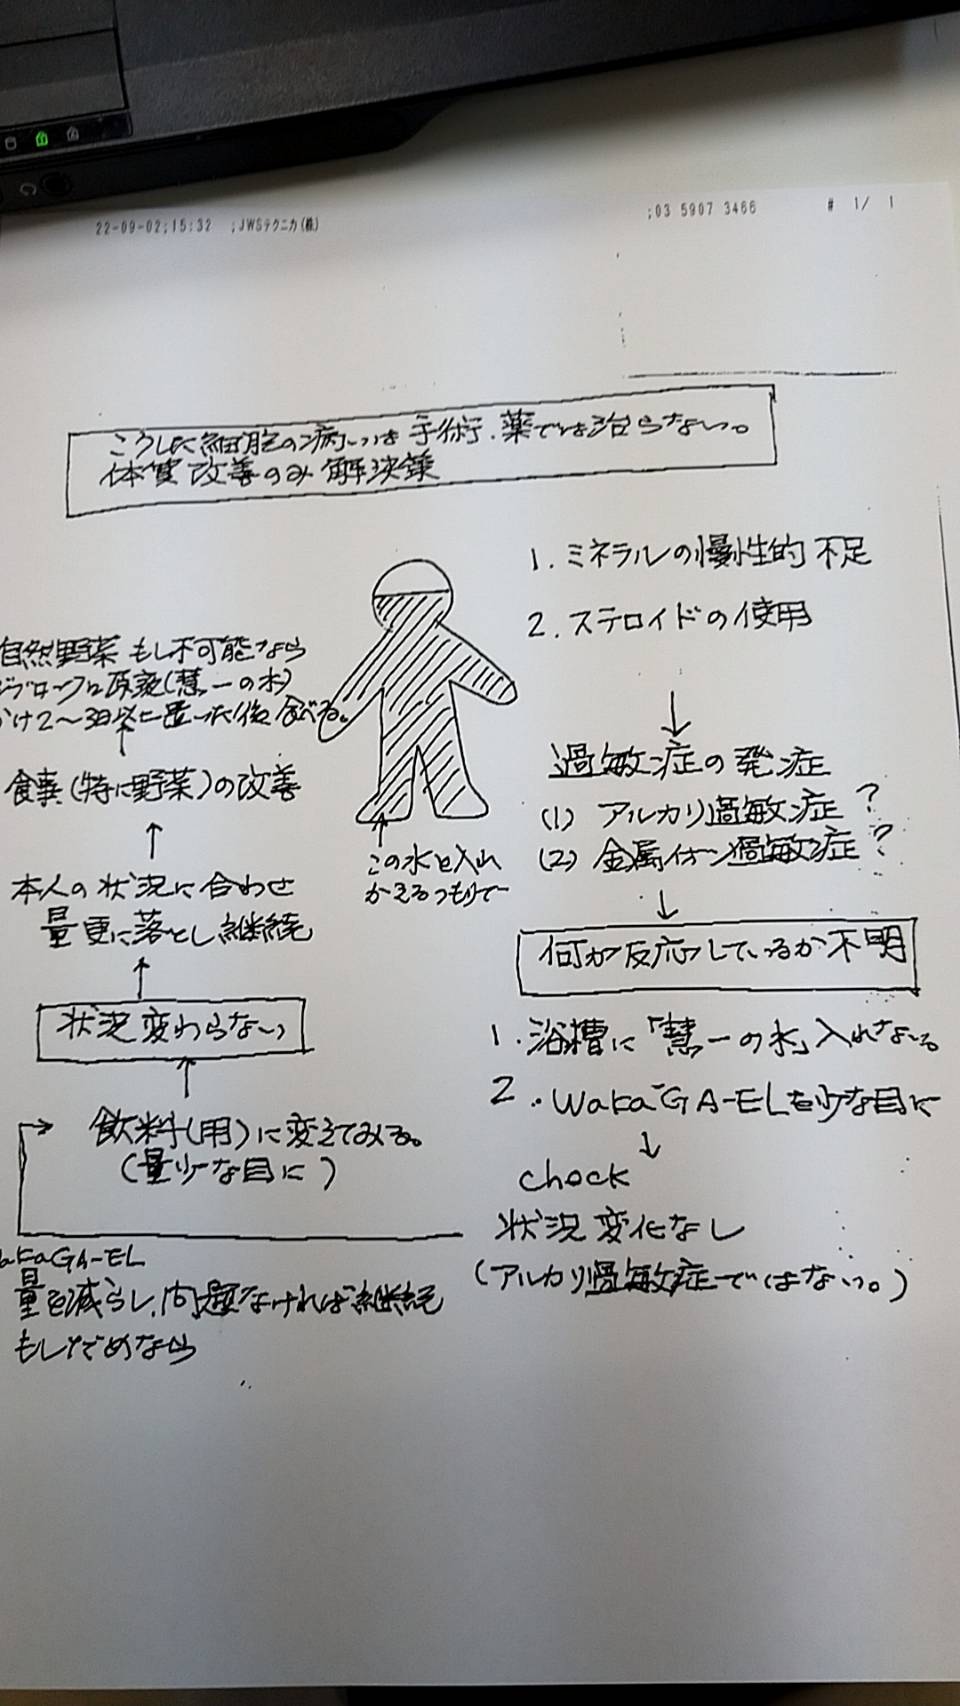 22-09-02;15:32 ;JWSテクニカ(株) ;03 5907 3466 # 1/ 1
こうした細胞の病いは手術.薬では治らない。
体質改善のみ解決策
1. ミネラルの慢性的不足
2. ステロイドの使用
↓
過敏症の発症
(1) アルカリ過敏症?
(2) 金属イオン過敏症?
↓
何が反応しているか不明
1. 浴槽に「慧一の水」入れない。
2. WakaGA-ELを少な目に
↓
check
状況変化なし
(アルカリ過敏症ではない。)
WakaGA-EL
量を減らし、問題なければ継続
もしだめなら
飲料(用)に変えてみる。
(量少な目に)
↑
状況変わらない
↑
本人の状況に合わせ
量更に落とし継続
↑
食事(特に野菜)の改善
↑
自然野菜 もし不可能なら
原液(慧一の水)
かけ2〜3日以上置いた後食べる。
この水と入れ
かえるつもりで